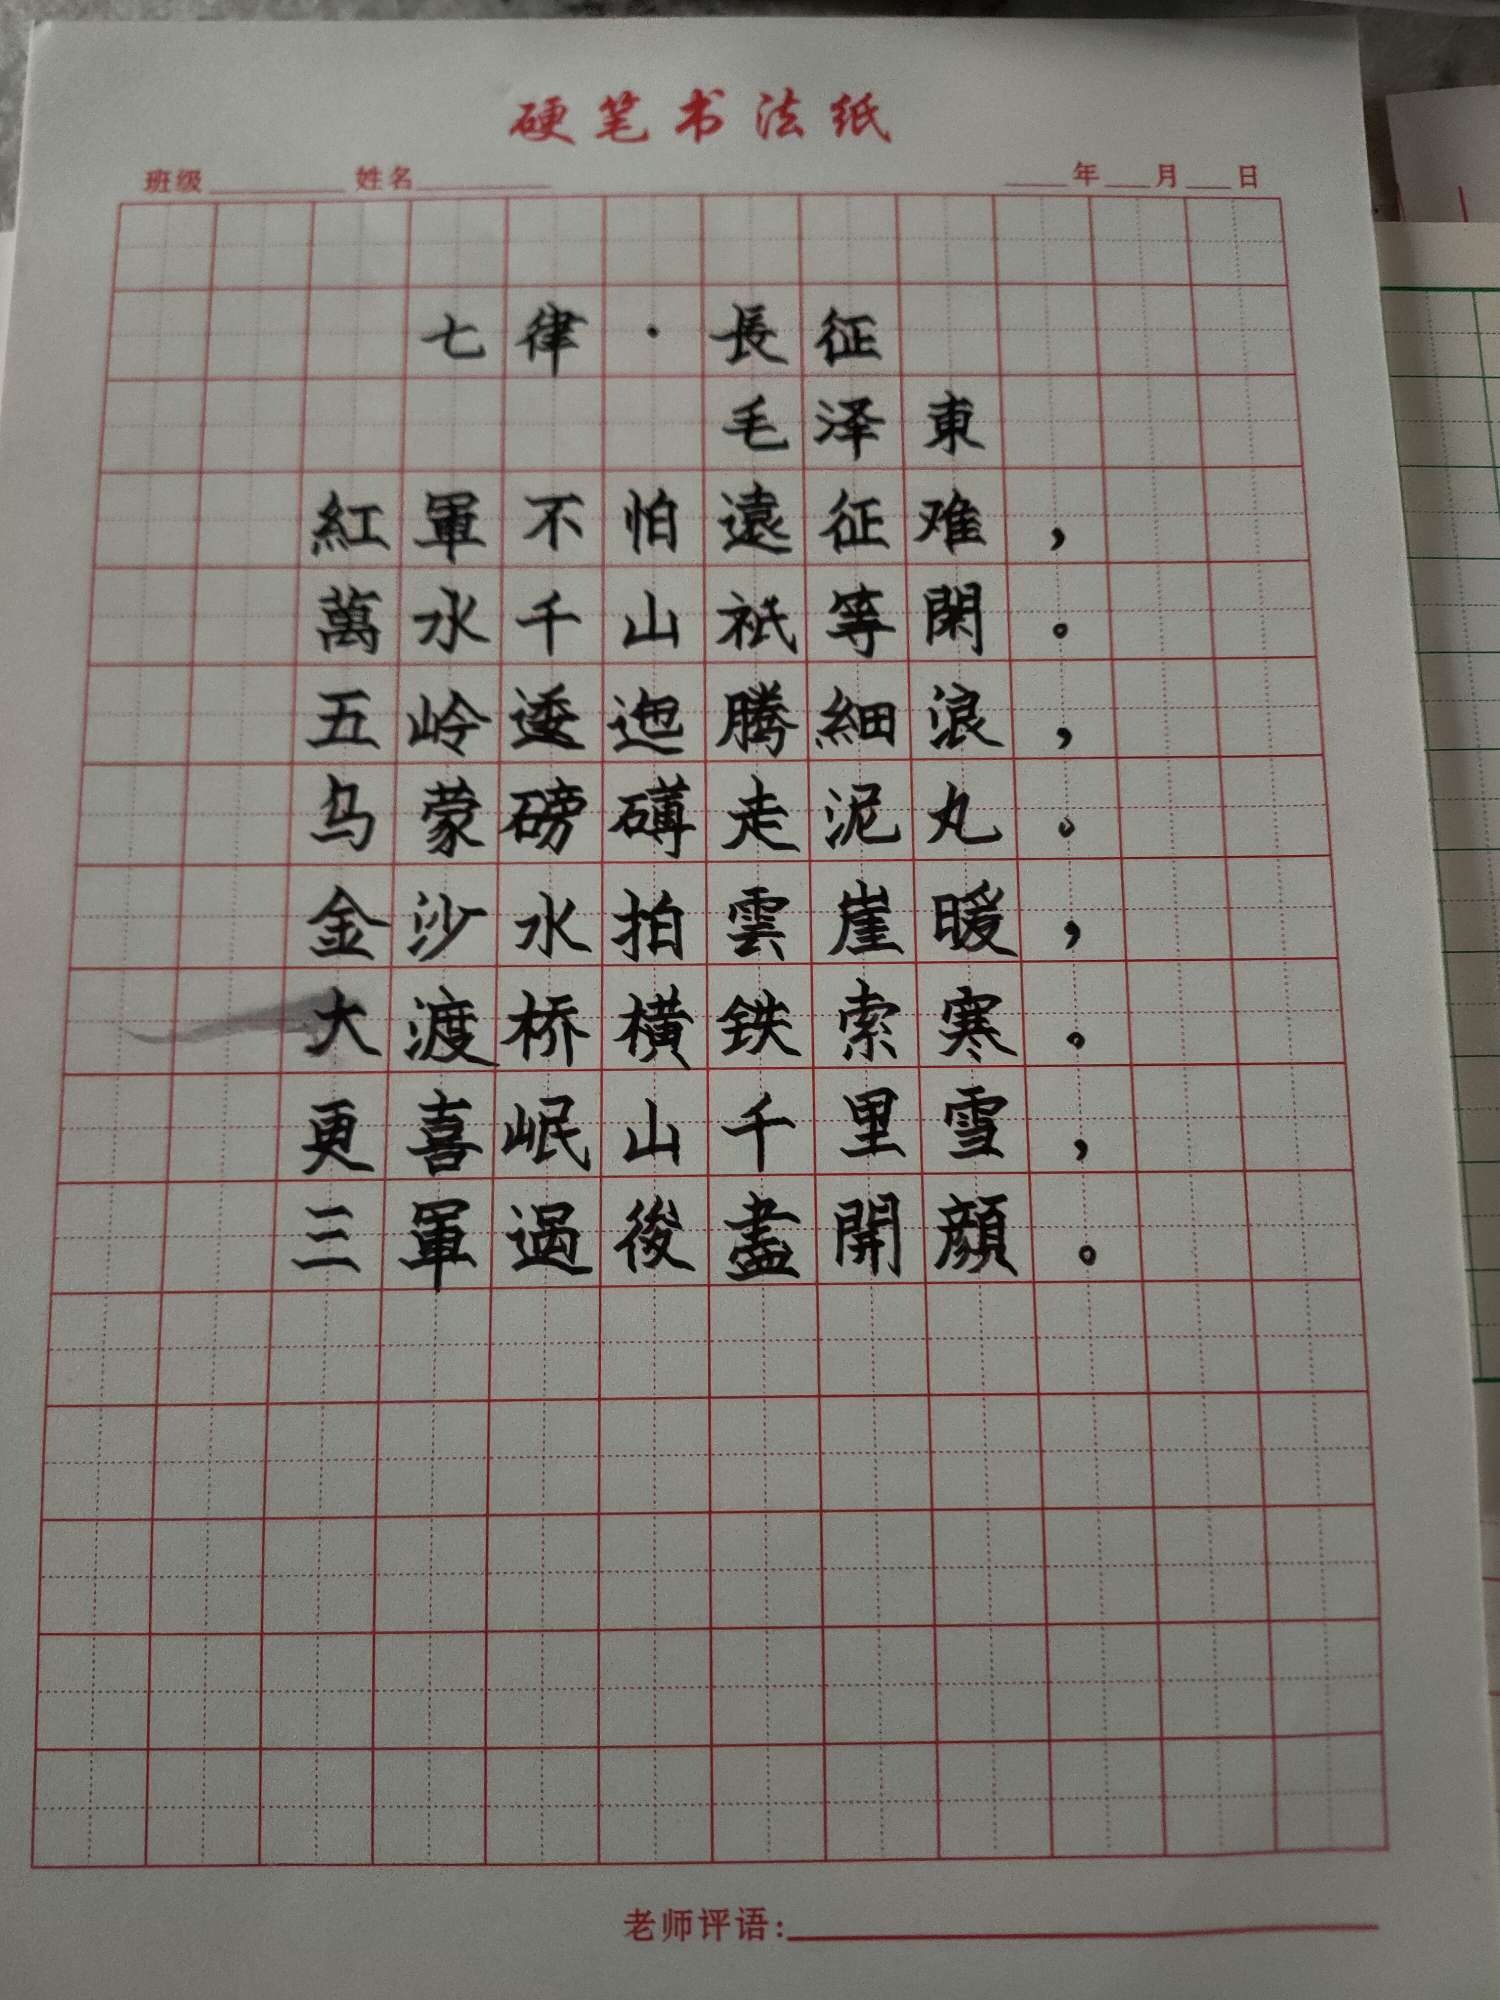 硬笔书法纸
班级 姓名 年 月 日
七律·長征
毛泽東
紅軍不怕遠征难，
萬水千山祇等閑。
五岭逶迤腾細浪，
乌蒙磅礴走泥丸。
金沙水拍雲崖暖，
大渡桥横铁索寒。
更喜岷山千里雪，
三軍過後盡開顔。
老师评语: